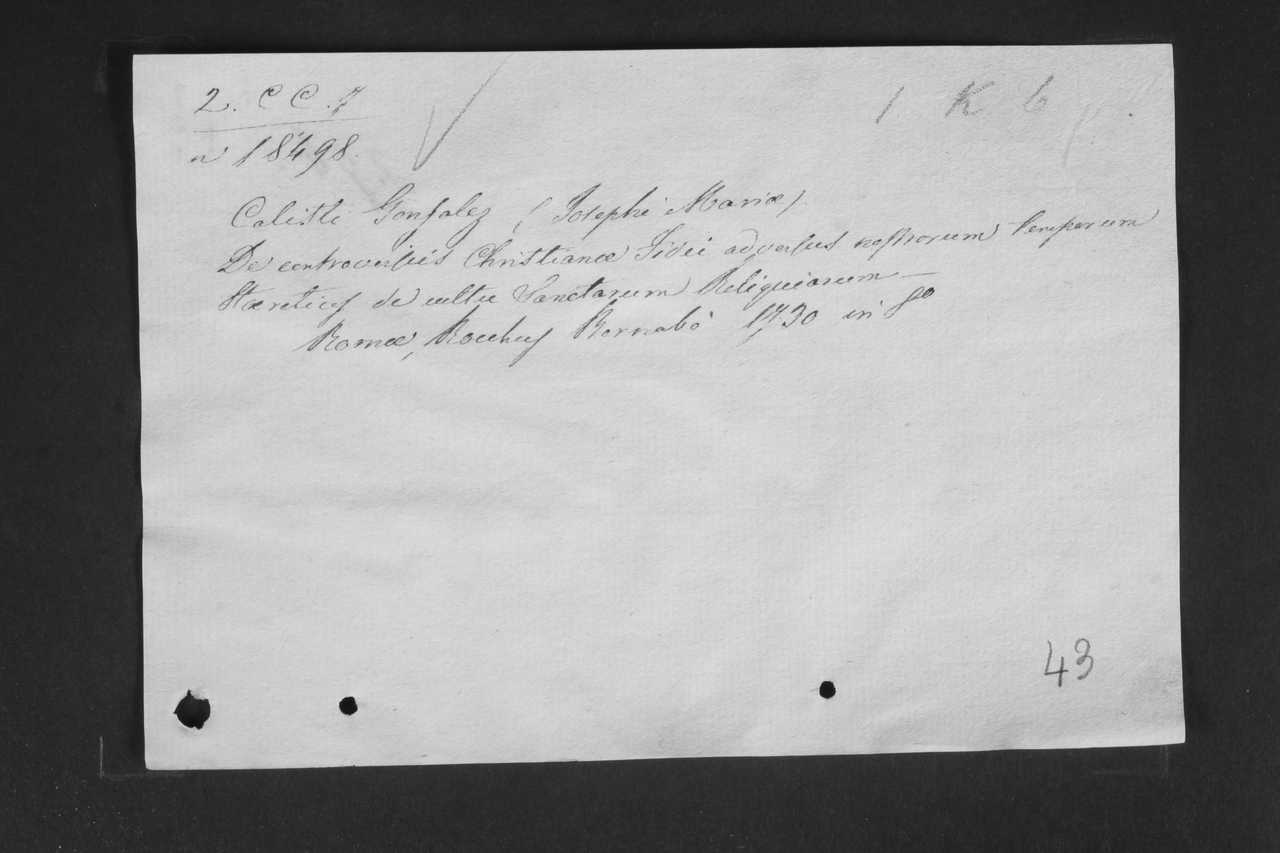 2. C C. 7
1 K 6
n 18498.
Calisti Gonsalez (Josephi Mariæ)
De controversiis Christianæ Fidei adversus nostrorum temporum
Hæreticos de cultu Sanctarum Reliquiarum —
Romæ, Rochus Bernabò 1730 in 8o
43